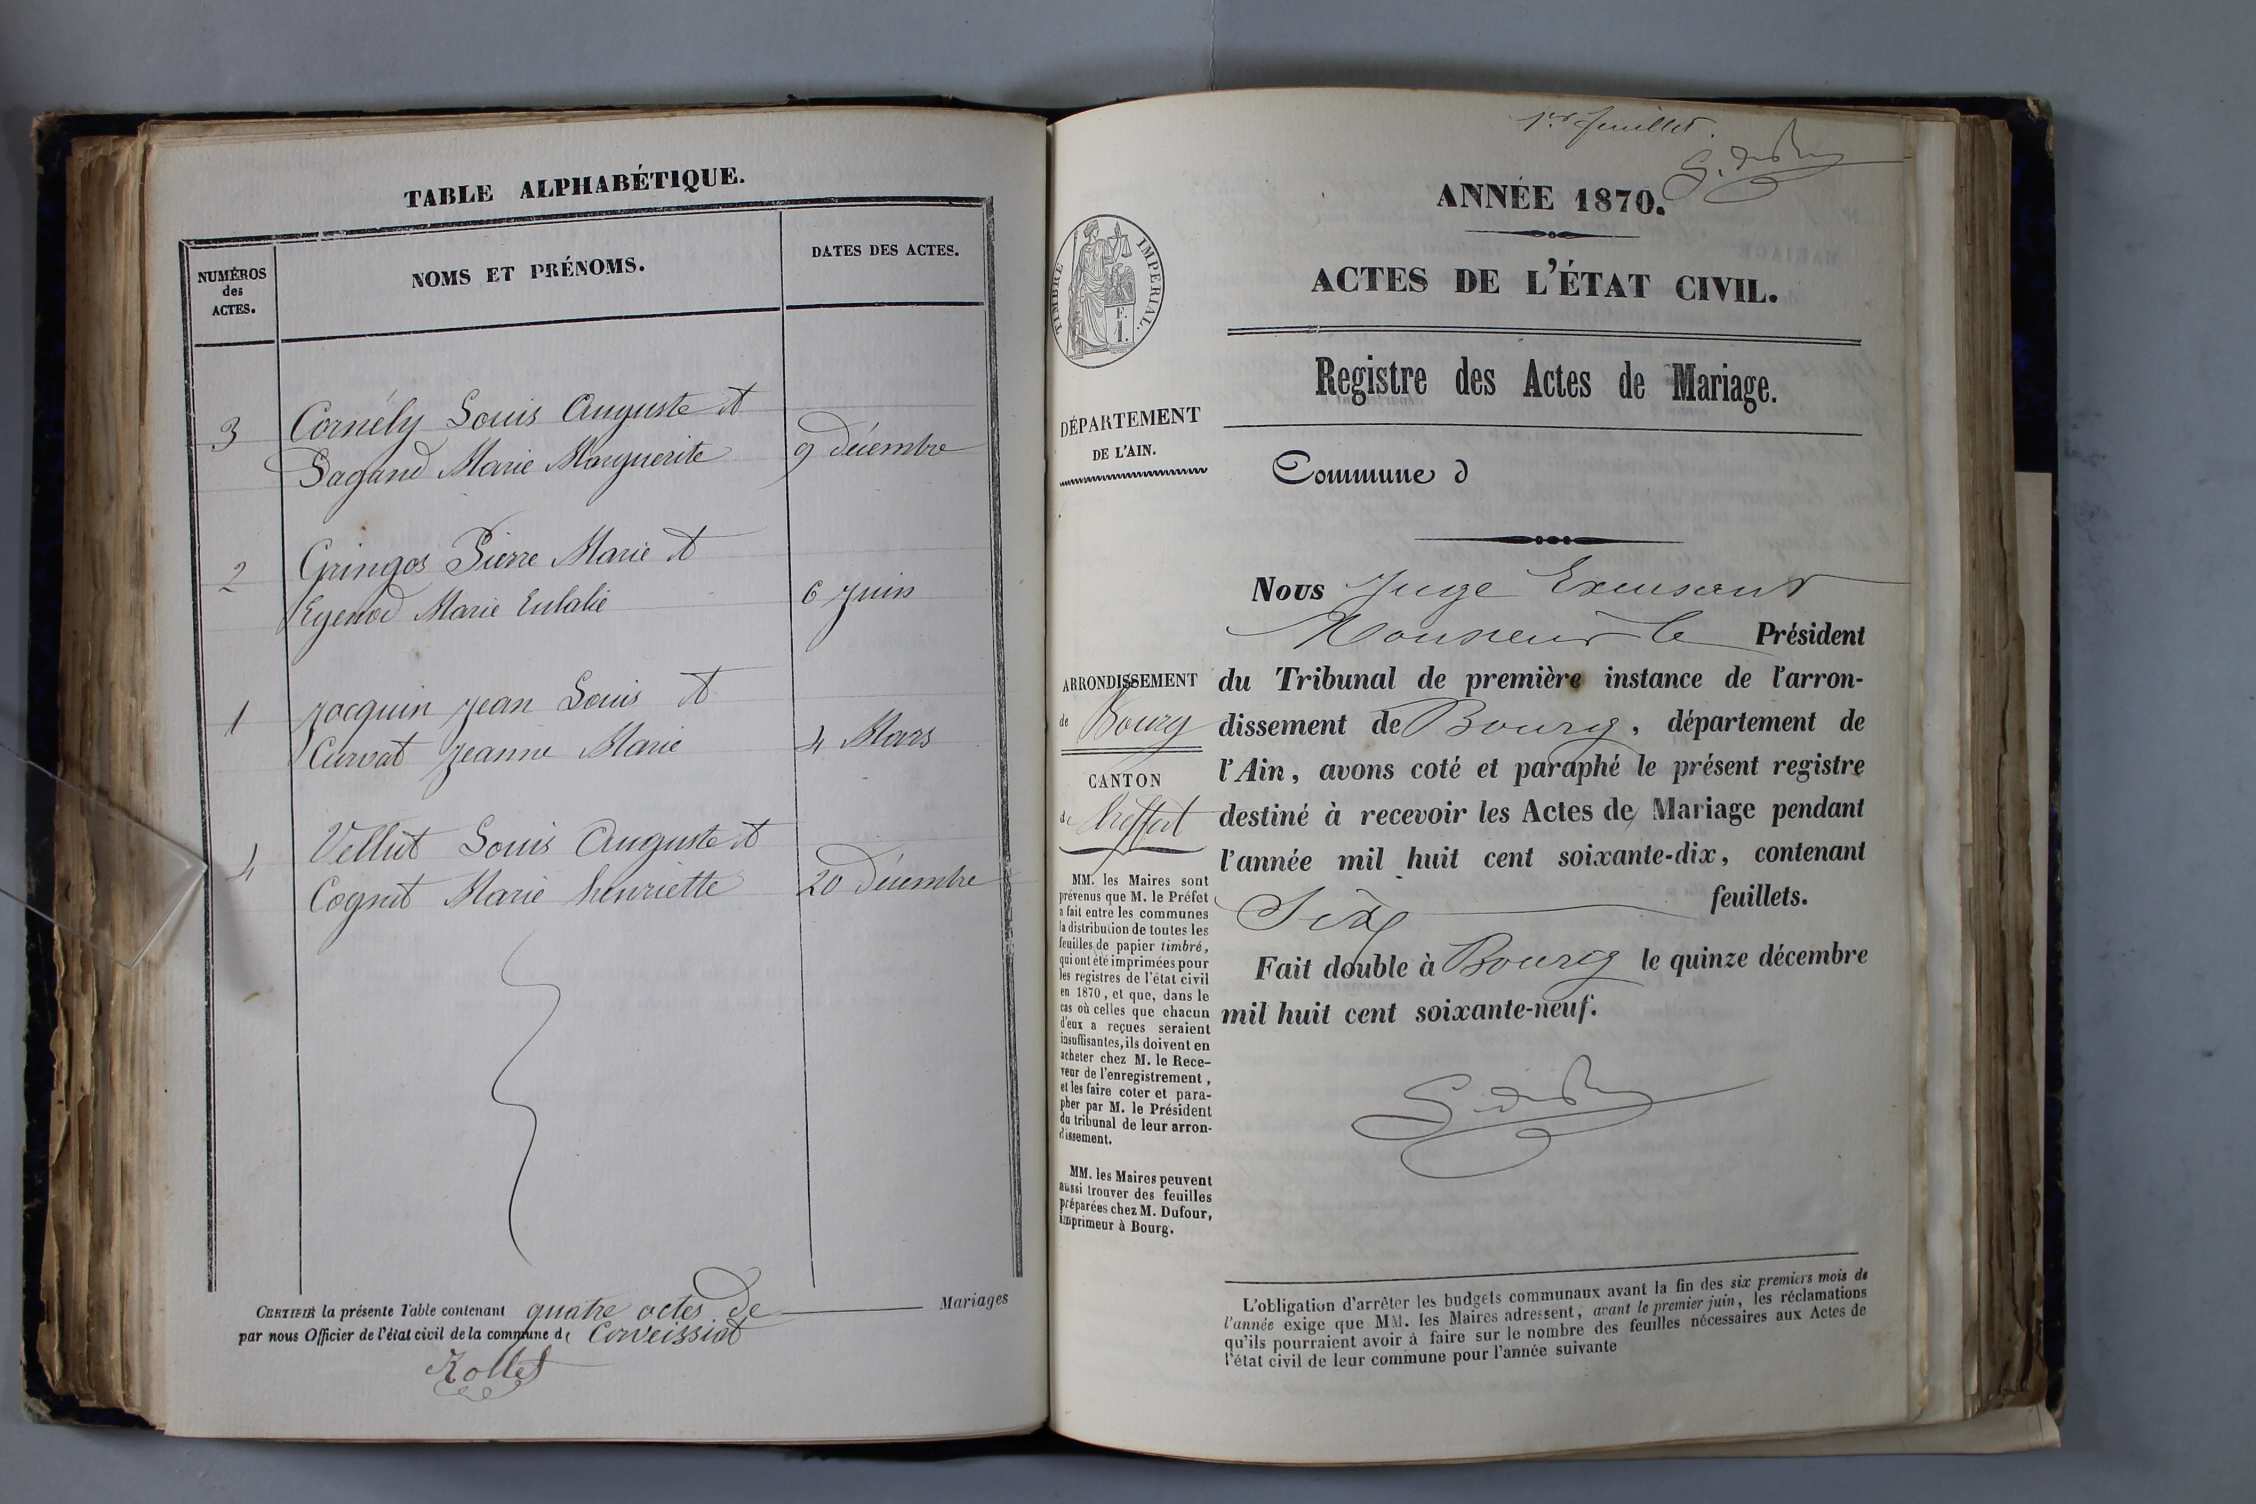 TABLE ALPHABÉTIQUE.
NUMÉROS
des
ACTES.
NOMS ET PRÉNOMS.
DATES DES ACTES.
3 Cornély Louis Auguste et
Sagand Marie Marguerite 9 décembre
2 Gringos Pierre Marie et
Eyenod Marie Eulalie 6 juin
1 Jacquin Jean Louis et
Curvat Jeanne Marie 4 Mars
4 Vellut Louis Auguste et
Cognet Marie henriette 20 décembre
CERTIFIÉ la présente Table contenant quatre actes de Mariages
par nous Officier de l'état civil de la commune de Corveissiat
Rollet
1er feuillet.
ANNÉE 1870.
ACTES DE L'ÉTAT CIVIL.
TIMBRE IMPÉRIAL.
F.
1.
Registre des Actes de Mariage.
DÉPARTEMENT
DE L'AIN.
Commune d
Nous Juge Excusant
Monsieur le Président
du Tribunal de première instance de l'arron-
dissement de Bourg, département de
l'Ain, avons coté et paraphé le présent registre
destiné à recevoir les Actes de Mariage pendant
l'année mil huit cent soixante-dix, contenant
Six feuillets.
Fait double à Bourg le quinze décembre
mil huit cent soixante-neuf.
ARRONDISSEMENT
de Bourg
CANTON
de Treffort
MM. les Maires sont
prévenus que M. le Préfet
a fait entre les communes
la distribution de toutes les
feuilles de papier timbré,
qui ont été imprimées pour
les registres de l'état civil
en 1870, et que, dans le
cas où celles que chacun
d'eux a reçues seraient
insuffisantes, ils doivent en
acheter chez M. le Rece-
veur de l'enregistrement,
et les faire coter et para-
pher par M. le Président
du tribunal de leur arron-
dissement.
MM. les Maires peuvent
aussi trouver des feuilles
préparées chez M. Dufour,
imprimeur à Bourg.
L'obligation d'arrêter les budgets communaux avant la fin des six premiers mois de
l'année exige que MM. les Maires adressent, avant le premier juin, les réclamations
qu'ils pourraient avoir à faire sur le nombre des feuilles nécessaires aux Actes de
l'état civil de leur commune pour l'année suivante